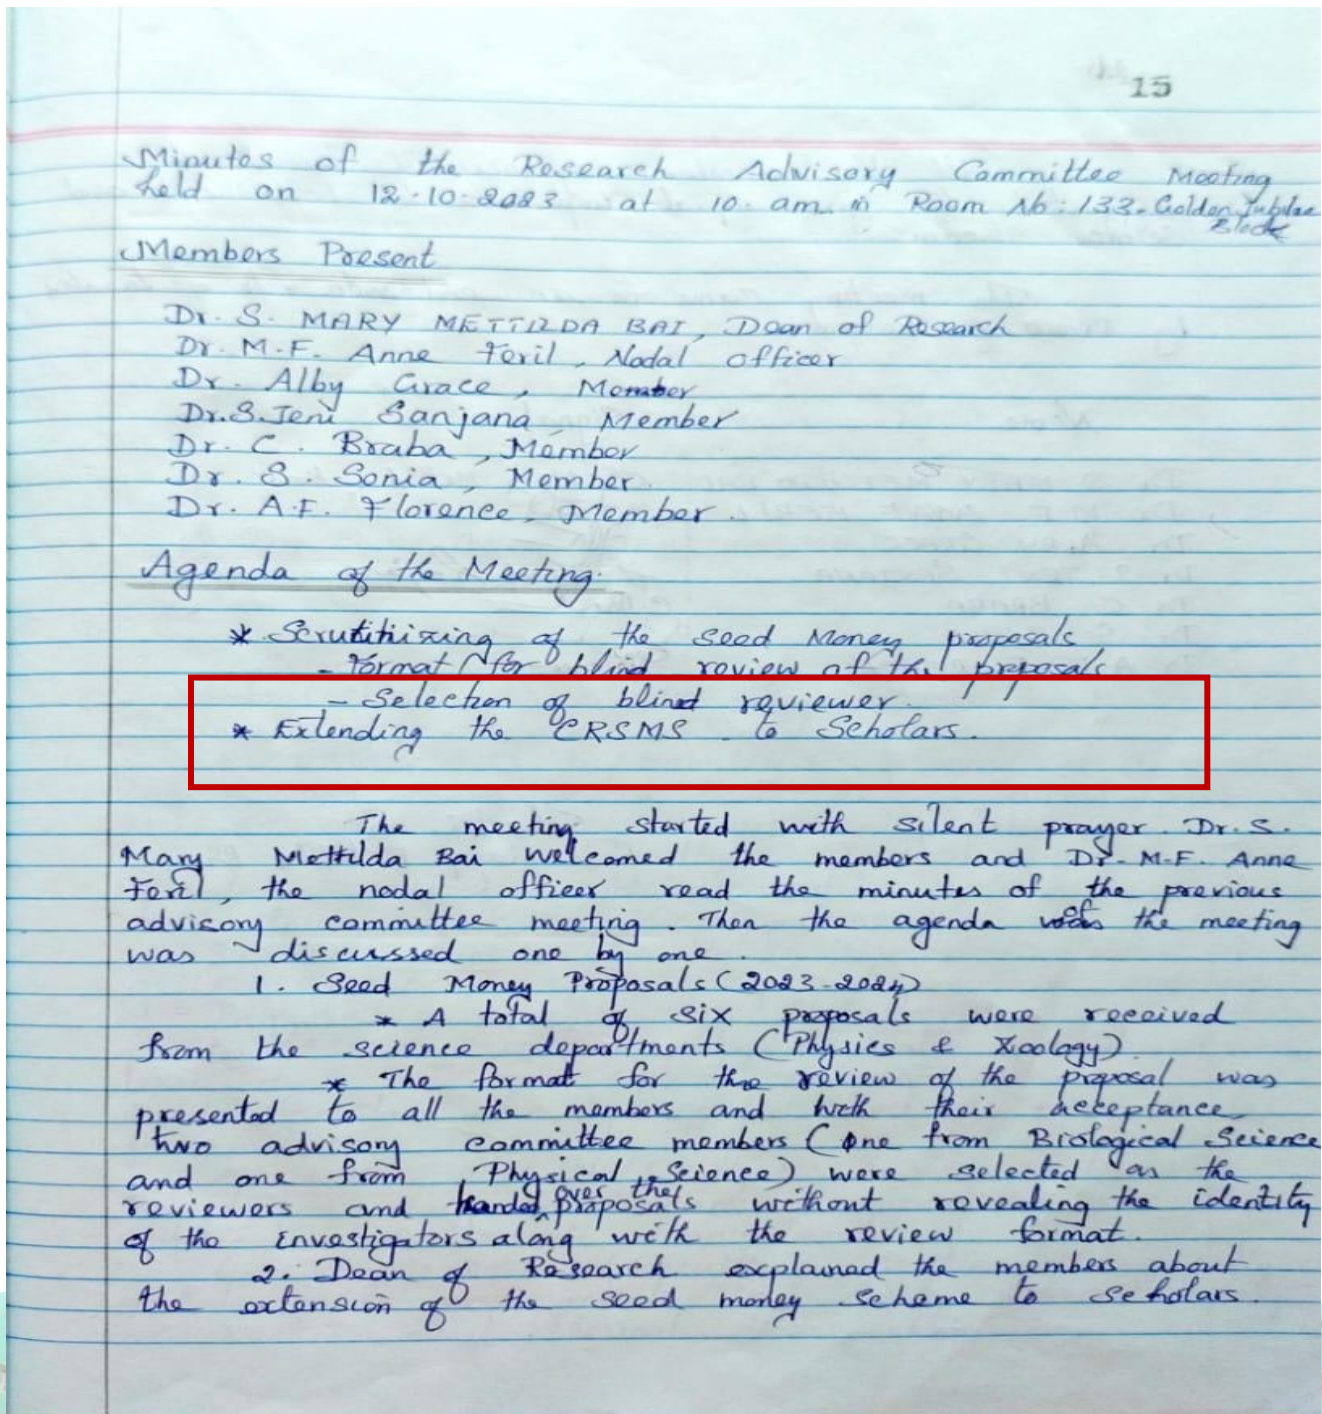 15
Minutes of the Research Advisory Committee Meeting
held on 12.10.2023 at 10. am. in Room No: 133. Golden Jubilee
Block
Members Present
Dr. S. MARY METTILDA BAI, Dean of Research
Dr. M.F. Anne Feril, Nodal officer
Dr. Alby Grace, Member
Dr. S. Jeni Sanjana, Member
Dr. C. Braba, Member
Dr. S. Sonia, Member.
Dr. A.F. Florence, Member.
Agenda of the Meeting.
* Scrutitinizing of the seed Money proposals
- Format for blind review of the proposals
- Selection of blind reviewer.
* Extending the CRSMS to Scholars.
The meeting started with silent prayer. Dr. S.
Mary Mettilda Bai welcomed the members and Dr. M.F. Anne
Feril, the nodal officer read the minutes of the previous
advisory committee meeting. Then the agenda of the meeting
was discussed one by one.
1. Seed Money Proposals (2023-2024)
* A total of six proposals were received
from the science departments (Physics & Zoology)
* The format for the review of the proposal was
presented to all the members and with their acceptance
two advisory committee members (one from Biological Science
and one from Physical Science) were selected as the
reviewers and handed over the proposals without revealing the identity
of the investigators along with the review format.
2. Dean of Research explained the members about
the extension of the seed money scheme to scholars.